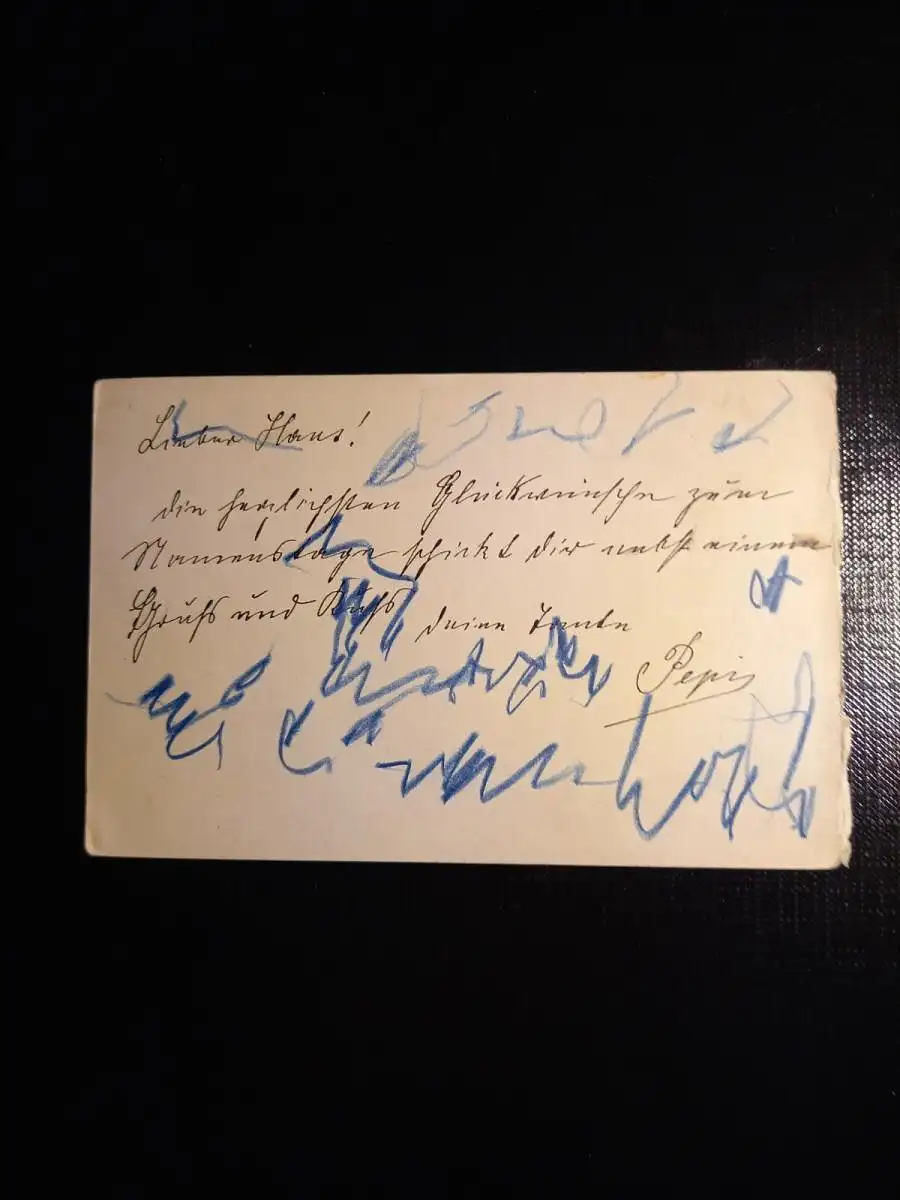 Lieber Hans!
die herzlichsten Glückwünsche zum
Namenstage schickt dir nebst einem
Gruß und Kuß
deine Tante
Pepi